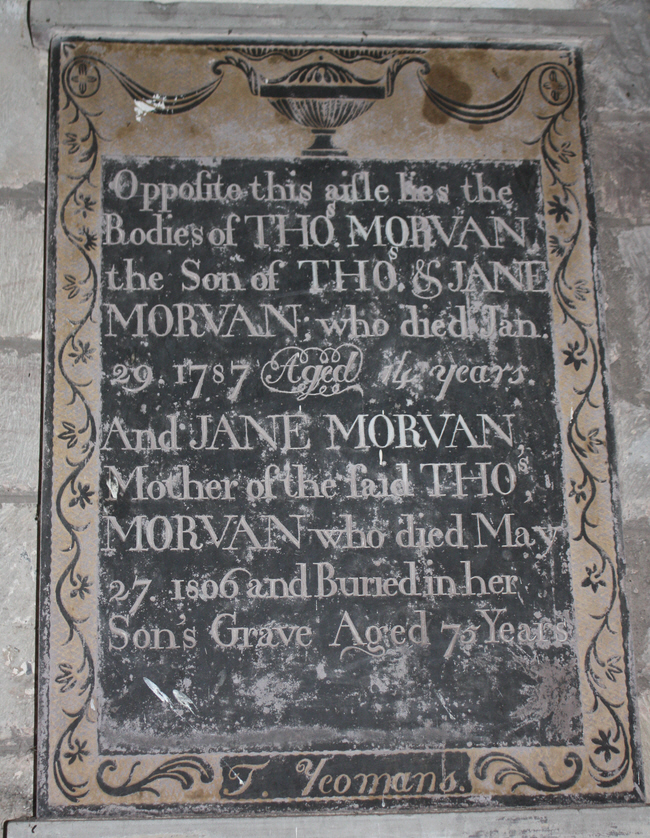 Oppoſite this aiſle lies the
Bodies of THOˢ. MORVAN,
the Son of THOˢ. & JANE
MORVAN; who died Jan.
29. 1787 Aged 14 years.
And JANE MORVAN,
Mother of the ſaid THOˢ,
MORVAN who died May
27. 1806 and Buried in her
Son's Grave Aged 75 Years
T. Yeomans.